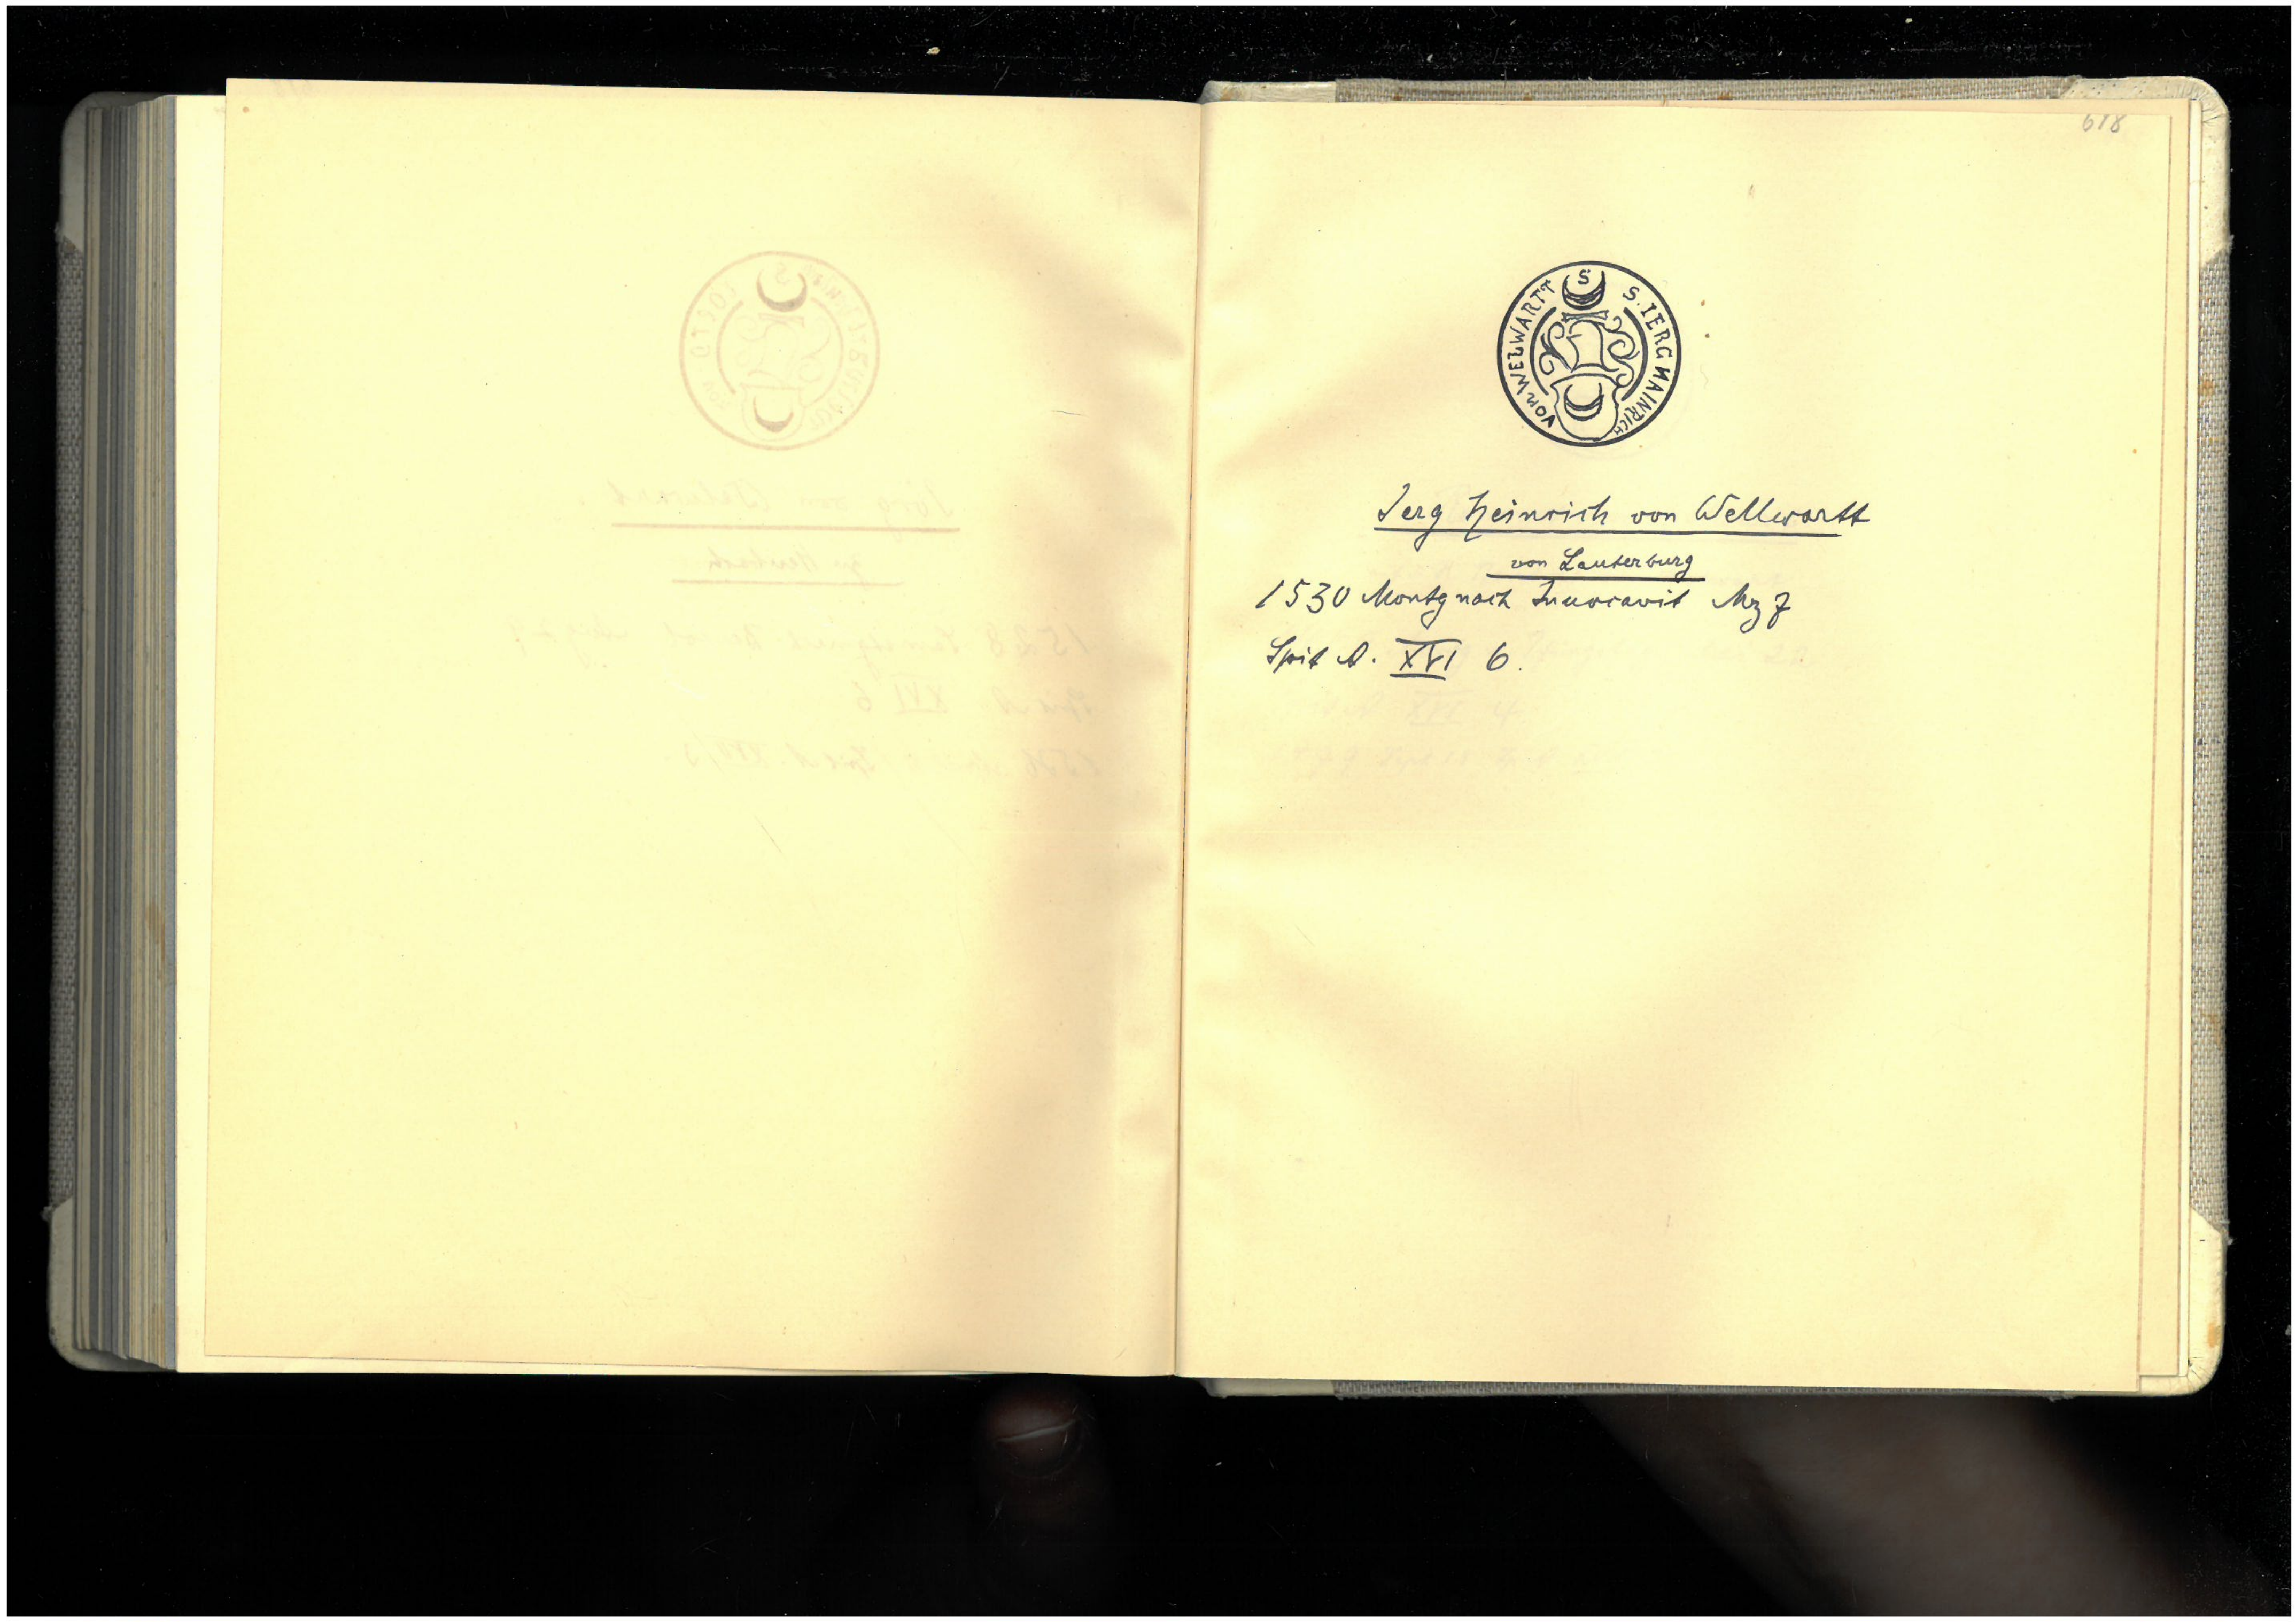 618
S
S. IERG HAINRICH
VON WELWARTT
Jerg Heinrich von Wellwartt
von Lauterburg
1530 Montg nach Invocavit Mz 7
Spit A. XVI 6.